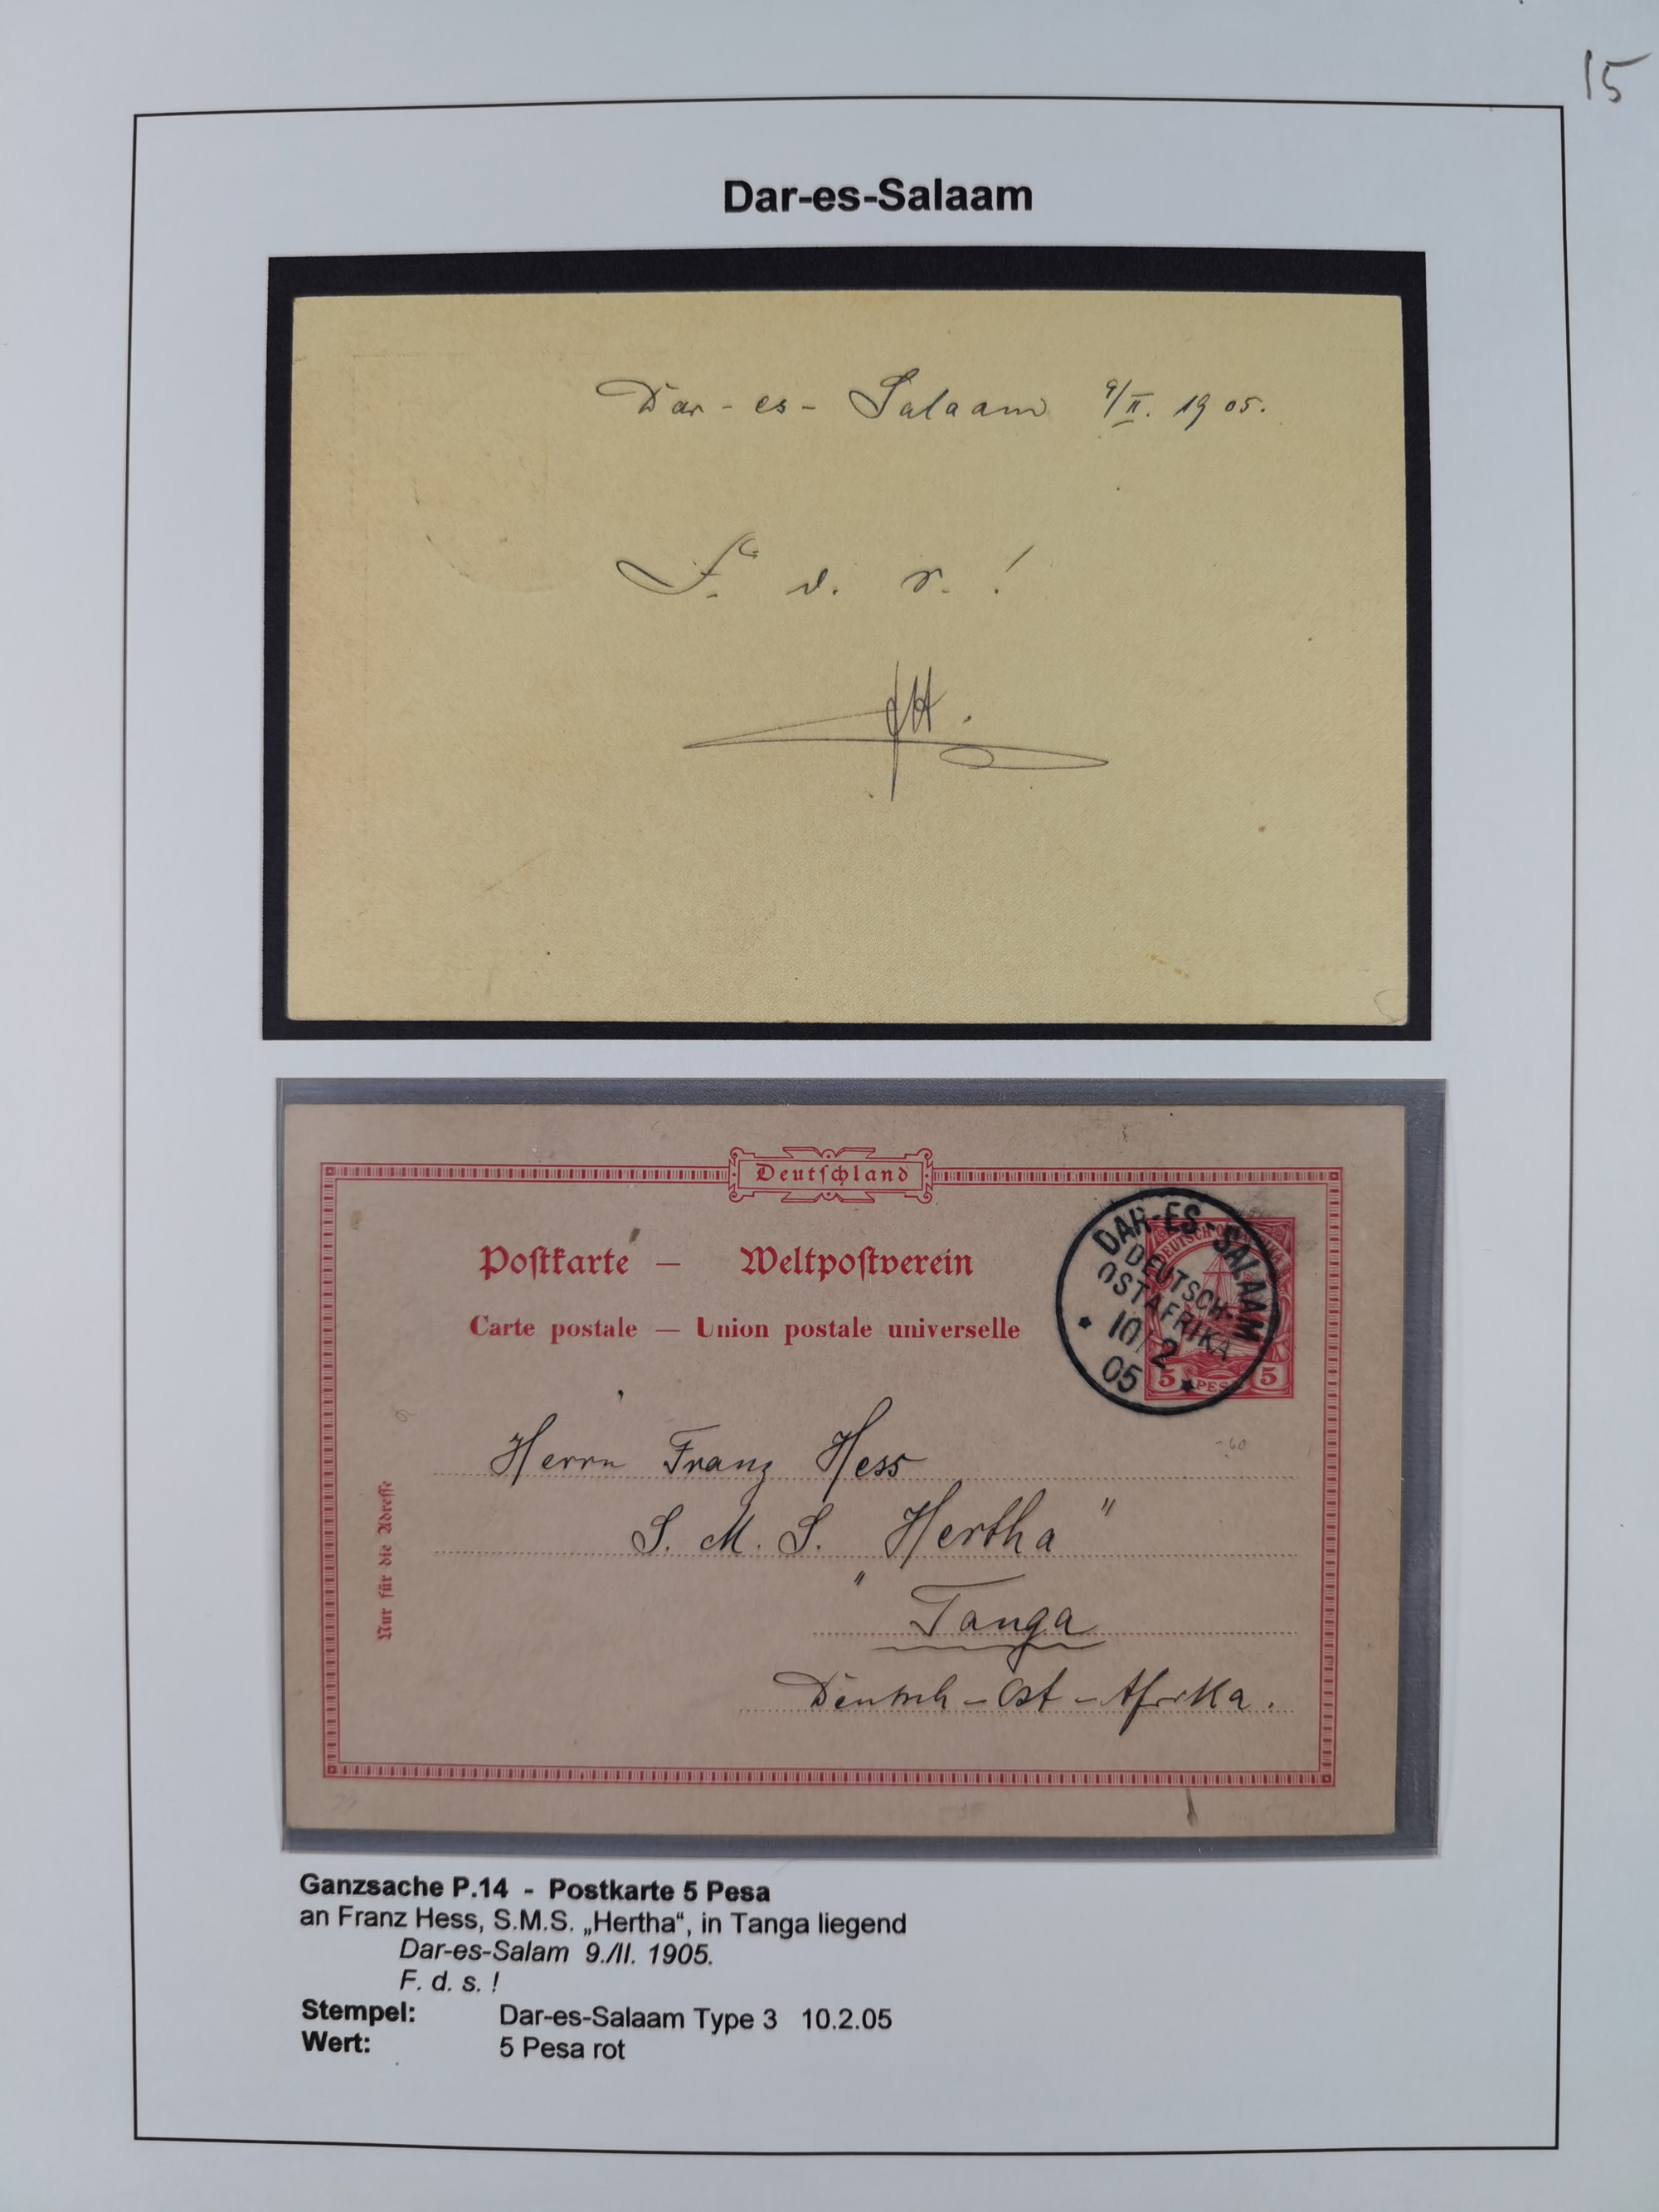 15
Dar-es-Salaam
Dar-es-Salaam 9/II. 1905.
F. d. s.!
Deutschland
Postkarte — Weltpostverein
Carte postale — Union postale universelle
DAR-ES-SALAAM
DEUTSCH-
OSTAFRIKA
10/2
05
5 PESA 5
Nur für die Adresse
Herrn Franz Hess
S. M. S. "Hertha"
" Tanga
Deutsch-Ost-Afrika.
Ganzsache P.14 - Postkarte 5 Pesa
an Franz Hess, S.M.S. „Hertha“, in Tanga liegend
Dar-es-Salam 9./II. 1905.
F. d. s. !
Stempel: Dar-es-Salaam Type 3 10.2.05
Wert: 5 Pesa rot